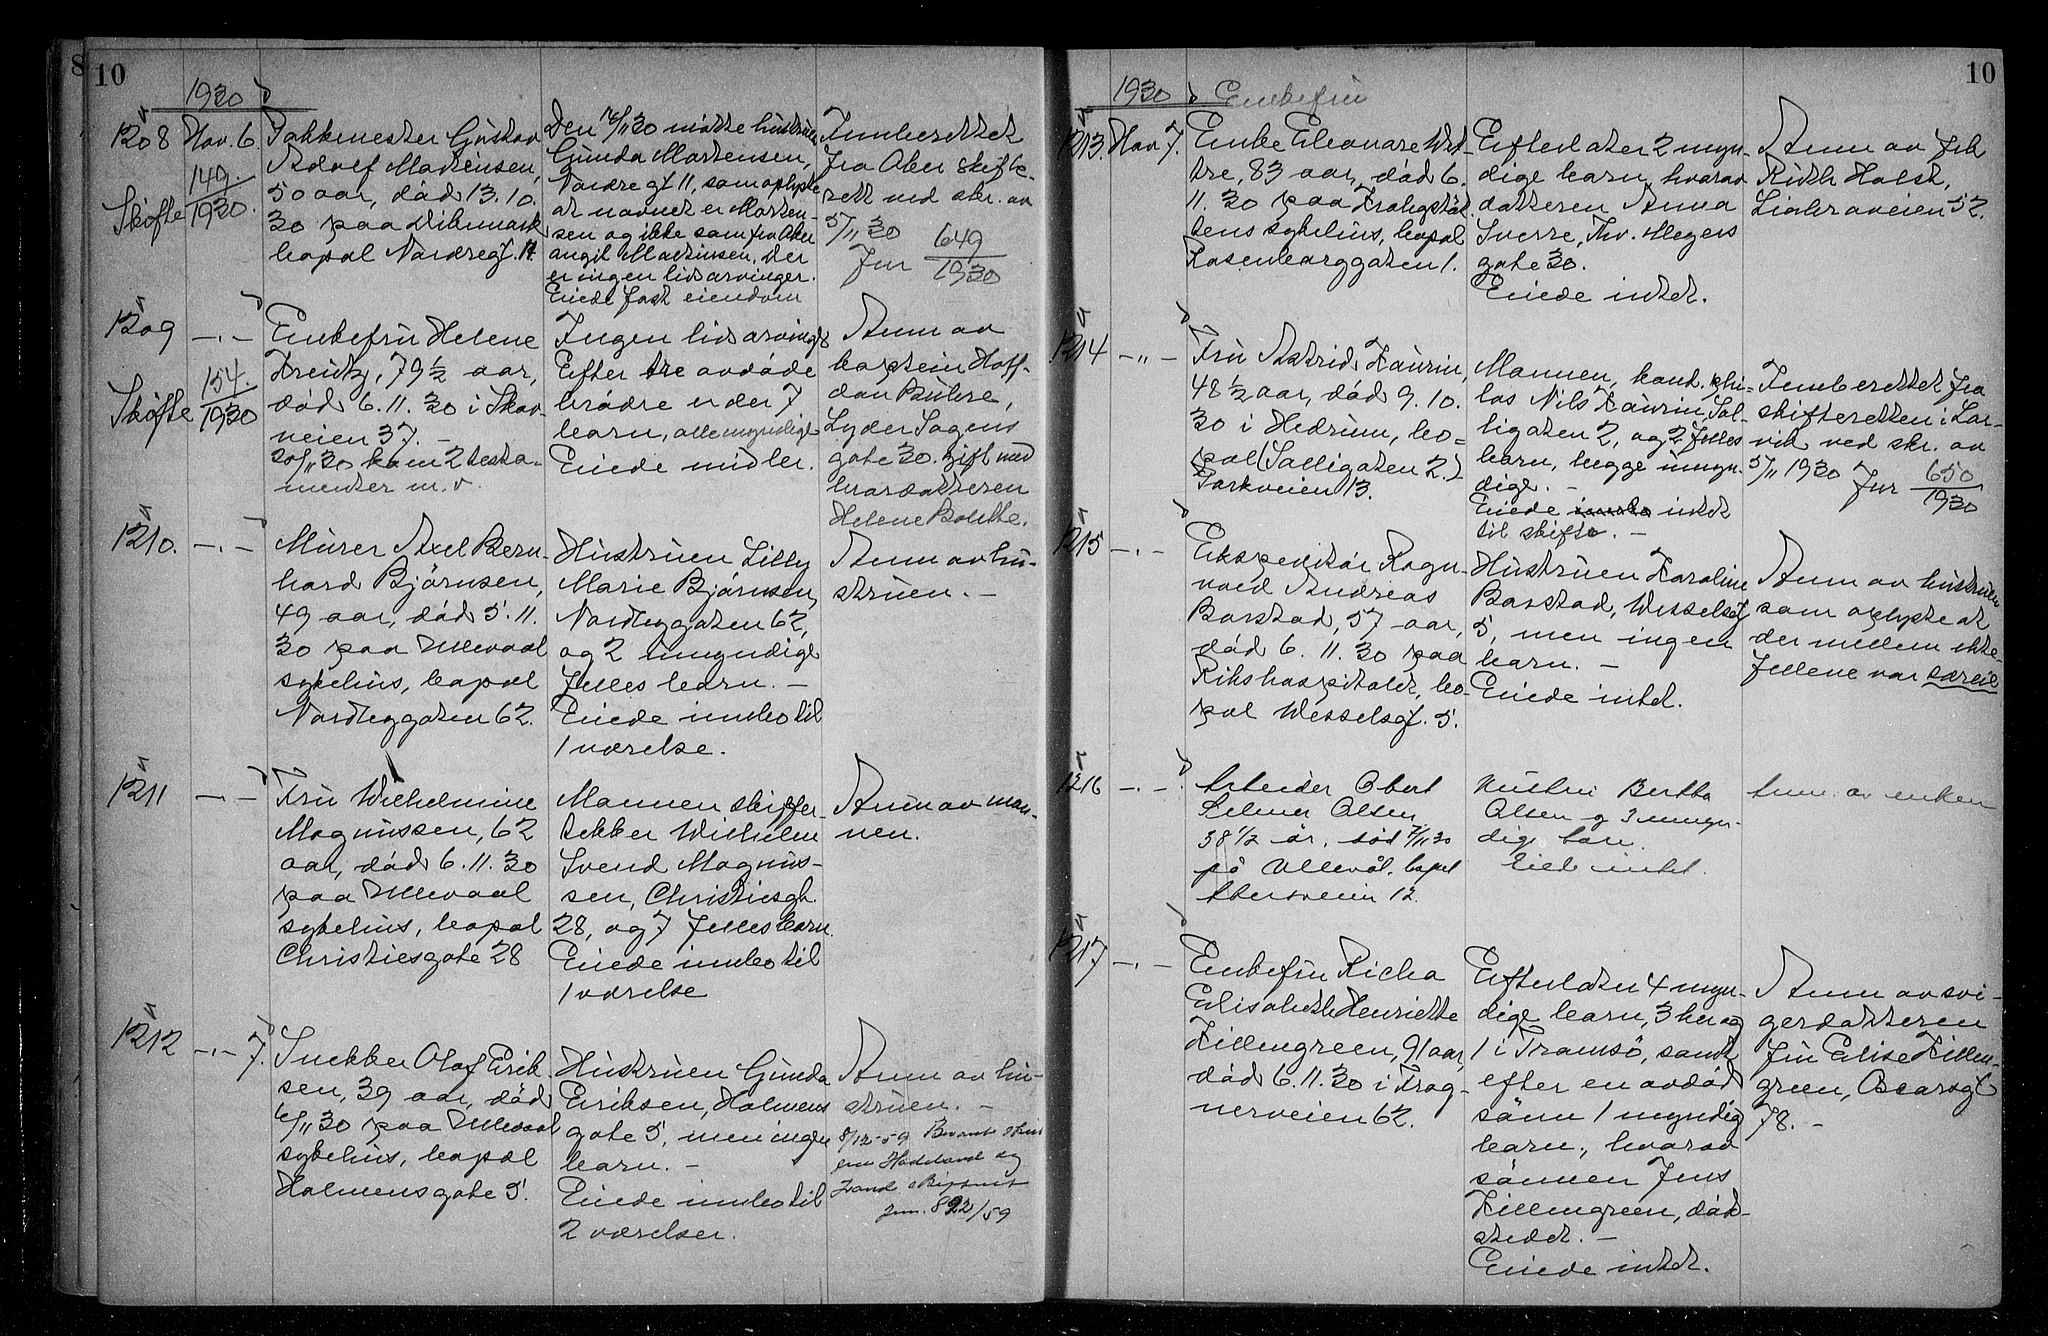 10
1930
1208 Nov. 6.
149.
1930.
Skifte
Pakkmester Gustav
Adolf Martinsen,
50 aar, död 13.10.
30 paa Dikemark
bopæl Nordregt. 11.
Den 14/11 30 mötte hustruen
Gunda Mortensen,
Nordregt 11, som oplyste
at navnet er Morten-
sen og ikke som fra Aker
angit Martinsen. Der
er ingen livsarvinger.
Eiede fast eiendom
Innberettet
fra Aker skifte-
rett ved skr. av
5/11 30
Jnr 649
1930
1209 -"-
Skifte
154.
1930
Enkefru Helene
Kreutz, 79 1/2 aar,
död 6.11.30 i Skov-
veien 37. -
20/11 30 kom 2 testa-
menter m.v.
Ingen livsarvinger
Efter tre avdöde
brödre er der 7
barn, alle myndige
Eiede midler.
Anm av
kaptein Half-
dan Bühre,
Lyder Sagens
gate 30. gift med
brordatteren
Helene Bolette.
1210. -"-
Murer Axel Bern-
hard Björnsen,
49 aar, död 5.11.
30 paa Ullevaal
sykehus, bopæl
Nordbyggaten 62.
Hustruen Lilly
Marie Björnsen,
Nordbyggaten 62,
og 2 umyndige
fælles barn. -
Eiede innbo til
1 værelse.
Anm av hu-
struen. -
1211 -"-
Fru Wilhelmine
Magnussen, 62
aar, död 6.11.30
paa Ullevaal
sykehus, bopæl
Christiesgate 28
Mannen skiffer-
tekker Wilhelm
Svend Magnus-
sen, Christiesgt.
28, og 7 fælles barn.
Eiede innbo til
1 værelse
Anm av man-
nen.
1212 -"- 7.
Snekker Olaf Erik-
sen, 39 aar, död
6/11 30 paa Ullevaal
sykehus, bopæl
Holmensgate 5.
Hustruen Gunda
Eriksen, Holmens
gate 5, men ingen
barn. -
Eiede innbo til
2 værelser.
Anm av hu-
struen. -
8/12-59
fra Hadeland og
Land skifterett
Jnr. 892/59
10
1930
1213. Nov 7.
Enkefru
Enke Eleonore Wet-
tre, 83 aar, död 6.
11.30 paa Krohgstöt-
tens sykehus, bopæl
Rosenborggaten 1.
Efterlater 2 myn-
dige barn, hvorav
datteren Anna
Sverre, Thv. Meyers
gate 30.
Eiede intet.
Anm av frk
Ruth Holst,
52.
1214 -"-
Fru Astrid Kaurin,
48 1/2 aar, död 9.10.
30 i Hedrum, bo-
pæl (Solligaten 2.)
Parkveien 13.
Mannen, kand. phi-
los Nils Kaurin, Sol-
ligaten 2, og 2 fælles
barn, begge umyn-
dige. -
Eiede intet
til skifte. -
Innberettet fra
skifteretten i Lar-
vik ved skr. av
5/11 1930 Jnr 650
1930
1215 -"-
Ekspeditör Ragn-
vald Andreas
Barstad, 57 aar,
död 6.11.30 paa
Rikshospitalet, bo-
pæl Wesselsgt. 5.
Hustruen Karoline
Barstad, Wesselsgt
5, men ingen
barn. -
Eiede intet.
Anm av hustruen
som oplyste at
der mellem ekte-
fellene var særeie
1216 -"-
Arbeider Obert
Selmer Olsen
38 1/2 år, död 7/11 30
på Ullevål, bopel
Akersveien 12.
Hustru Bertha
Olsen og 3 umyn-
dige barn.
Eiet intet.
Anm. av enken
1217 -"-
Enkefru Ricka
Elisabeth Henriette
Killengreen, 91 aar,
död 6.11.30 i Frog-
nerveien 62.
Efterlater 4 myn-
dige barn, 3 her og
1 i Tromsö, samt
efter en avdöd
sönn 1 myndig
barn, hvorav
sönnen Jens
Killengreen, död-
stedet. -
Eiede intet.
Anm av svi-
gerdatteren
fru Elise Killen-
green, Oscarsgt
78. -